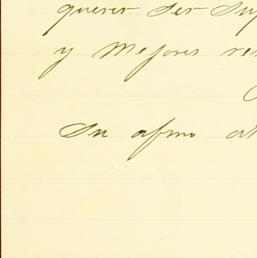 querer ser
y mejores
Su afmo